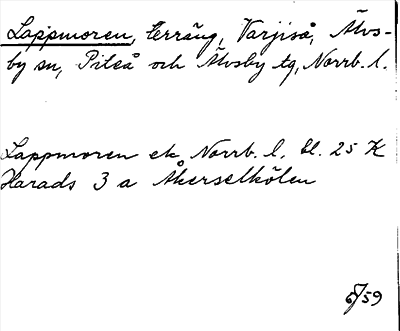 Lappmoren, terräng, Varjiså, Älvs-
by sn, Piteå och Älvsby tg, Norrb. l.
Lappmoren ek Norrb. l. bl. 25 K
Harads 3 a Åkerselkölen
59